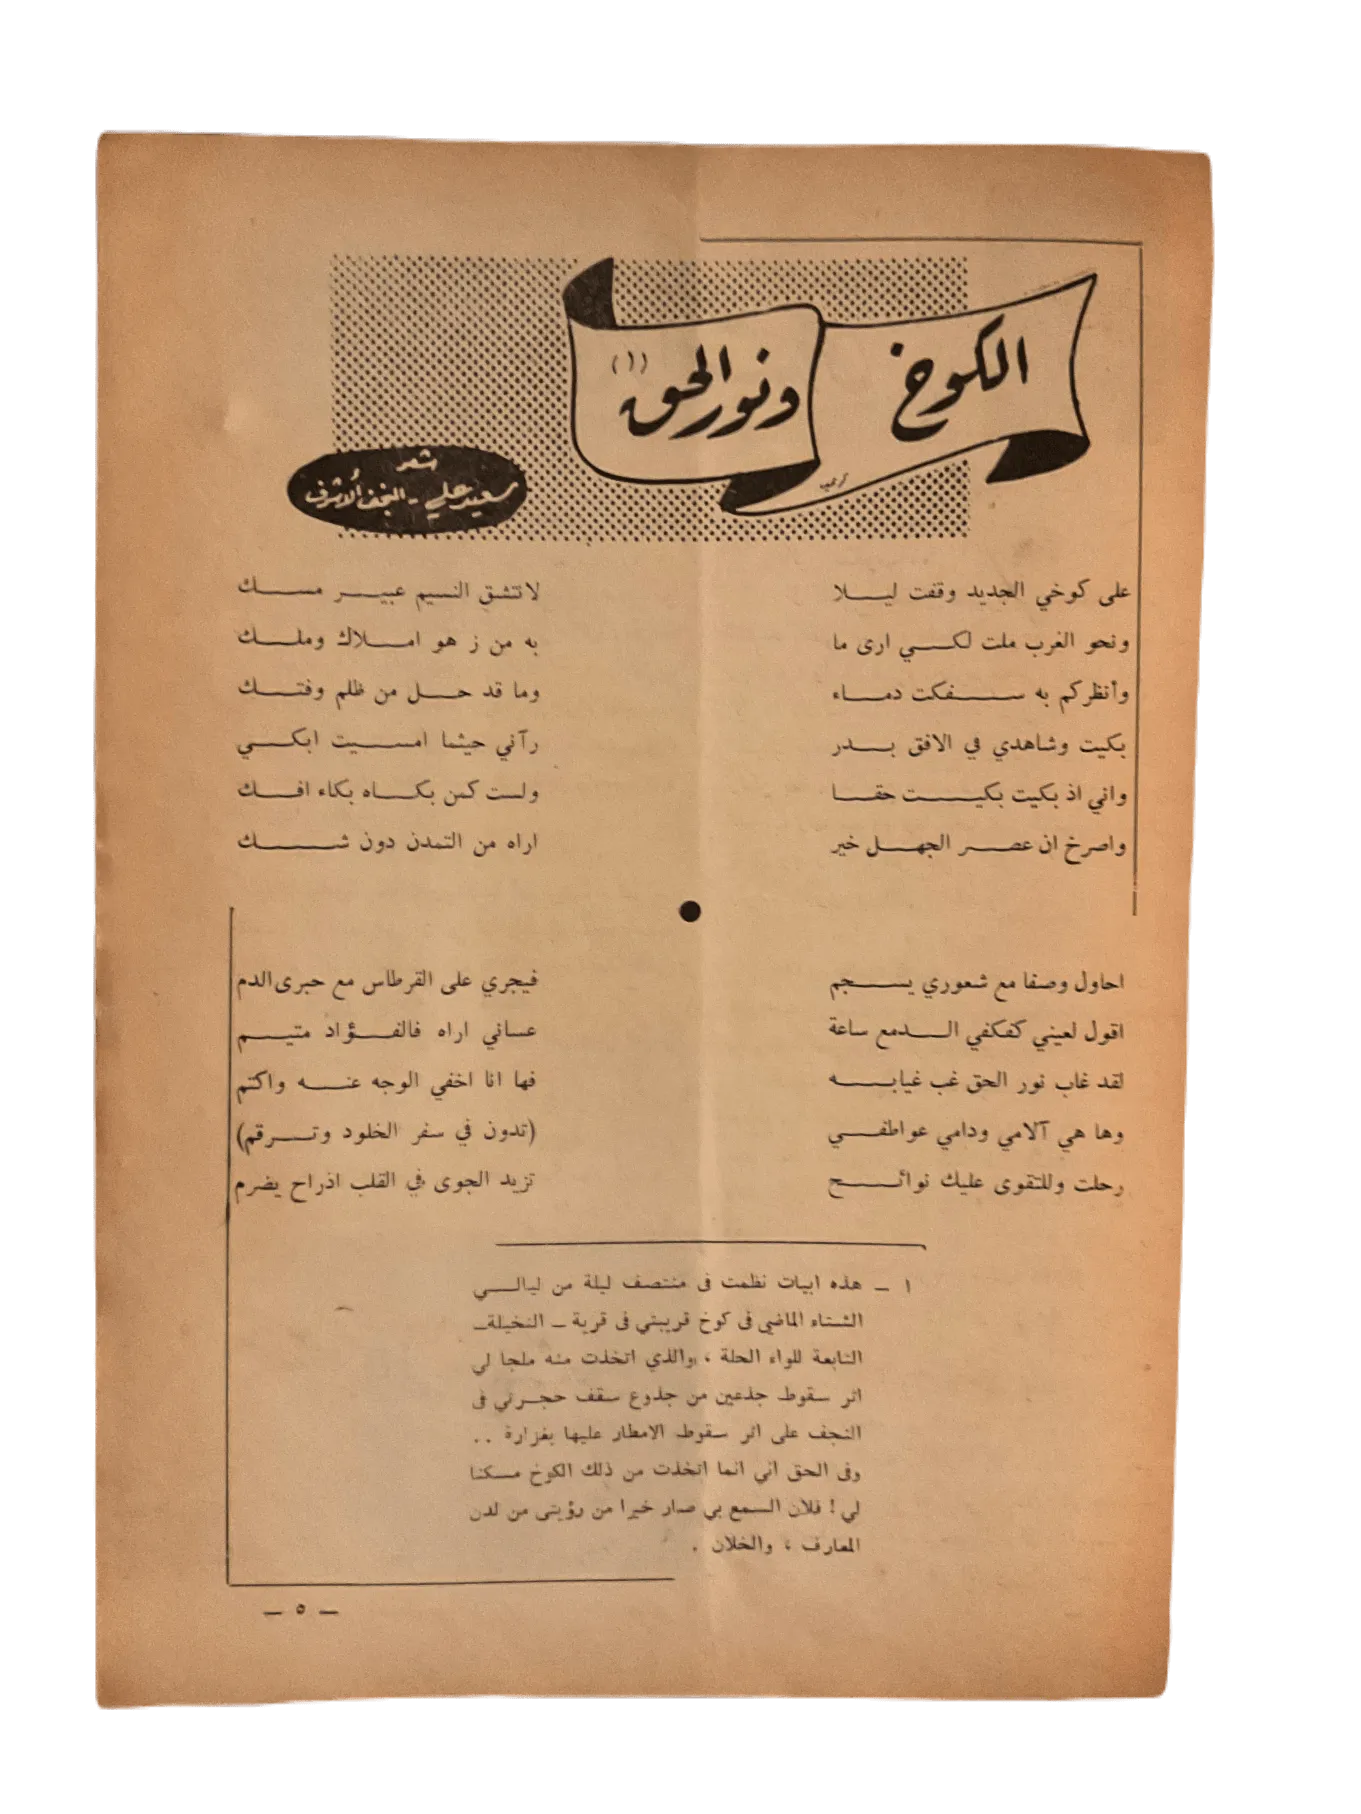 الكوخ ونور الحق (١)
شعر
سعيد علي - النجف الأشرف
على كوخي الجديد وقفت ليلا لانتشق النسيم عبير مسك
ونحو الغرب ملت لكي ارى ما به من ز هو املاك وملك
وأنظركم به سفكت دماء وما قد حل من ظلم وفتك
بكيت وشاهدي في الافق بدر رآني حيثما امسيت ابكي
واني اذ بكيت بكيت حقا ولست كمن بكاه بكاء افك
واصرخ ان عصر الجهل خير اراه من التمدن دون شك
احاول وصفا مع شعوري يسجم فيجري على القرطاس مع حبرى الدم
اقول لعيني كفكفي الدمع ساعة عساني اراه فالفؤاد متيم
لقد غاب نور الحق غب غيابه فها انا اخفي الوجه عنه واكتم
وها هي آلامي ودامي عواطفي (تدون في سفر الخلود وترقم)
رحلت وللتقوى عليك نوائح تزيد الجوى في القلب اذراح يضرم
١ - هذه ابيات نظمت فى منتصف ليلة من ليالي
الشتاء الماضي فى كوخ قريبتي فى قرية - النخيلة -
التابعة للواء الحلة ، والذي اتخذت منه ملجا لي
اثر سقوط جذعين من جذوع سقف حجرتي فى
النجف على اثر سقوط الامطار عليها بغزارة ..
وفى الحق اني انما اتخذت من ذلك الكوخ مسكنا
لي ! فلان السمع بي صار خيرا من رؤيتى من لدن
المعارف ، والخلان .
- ٥ -